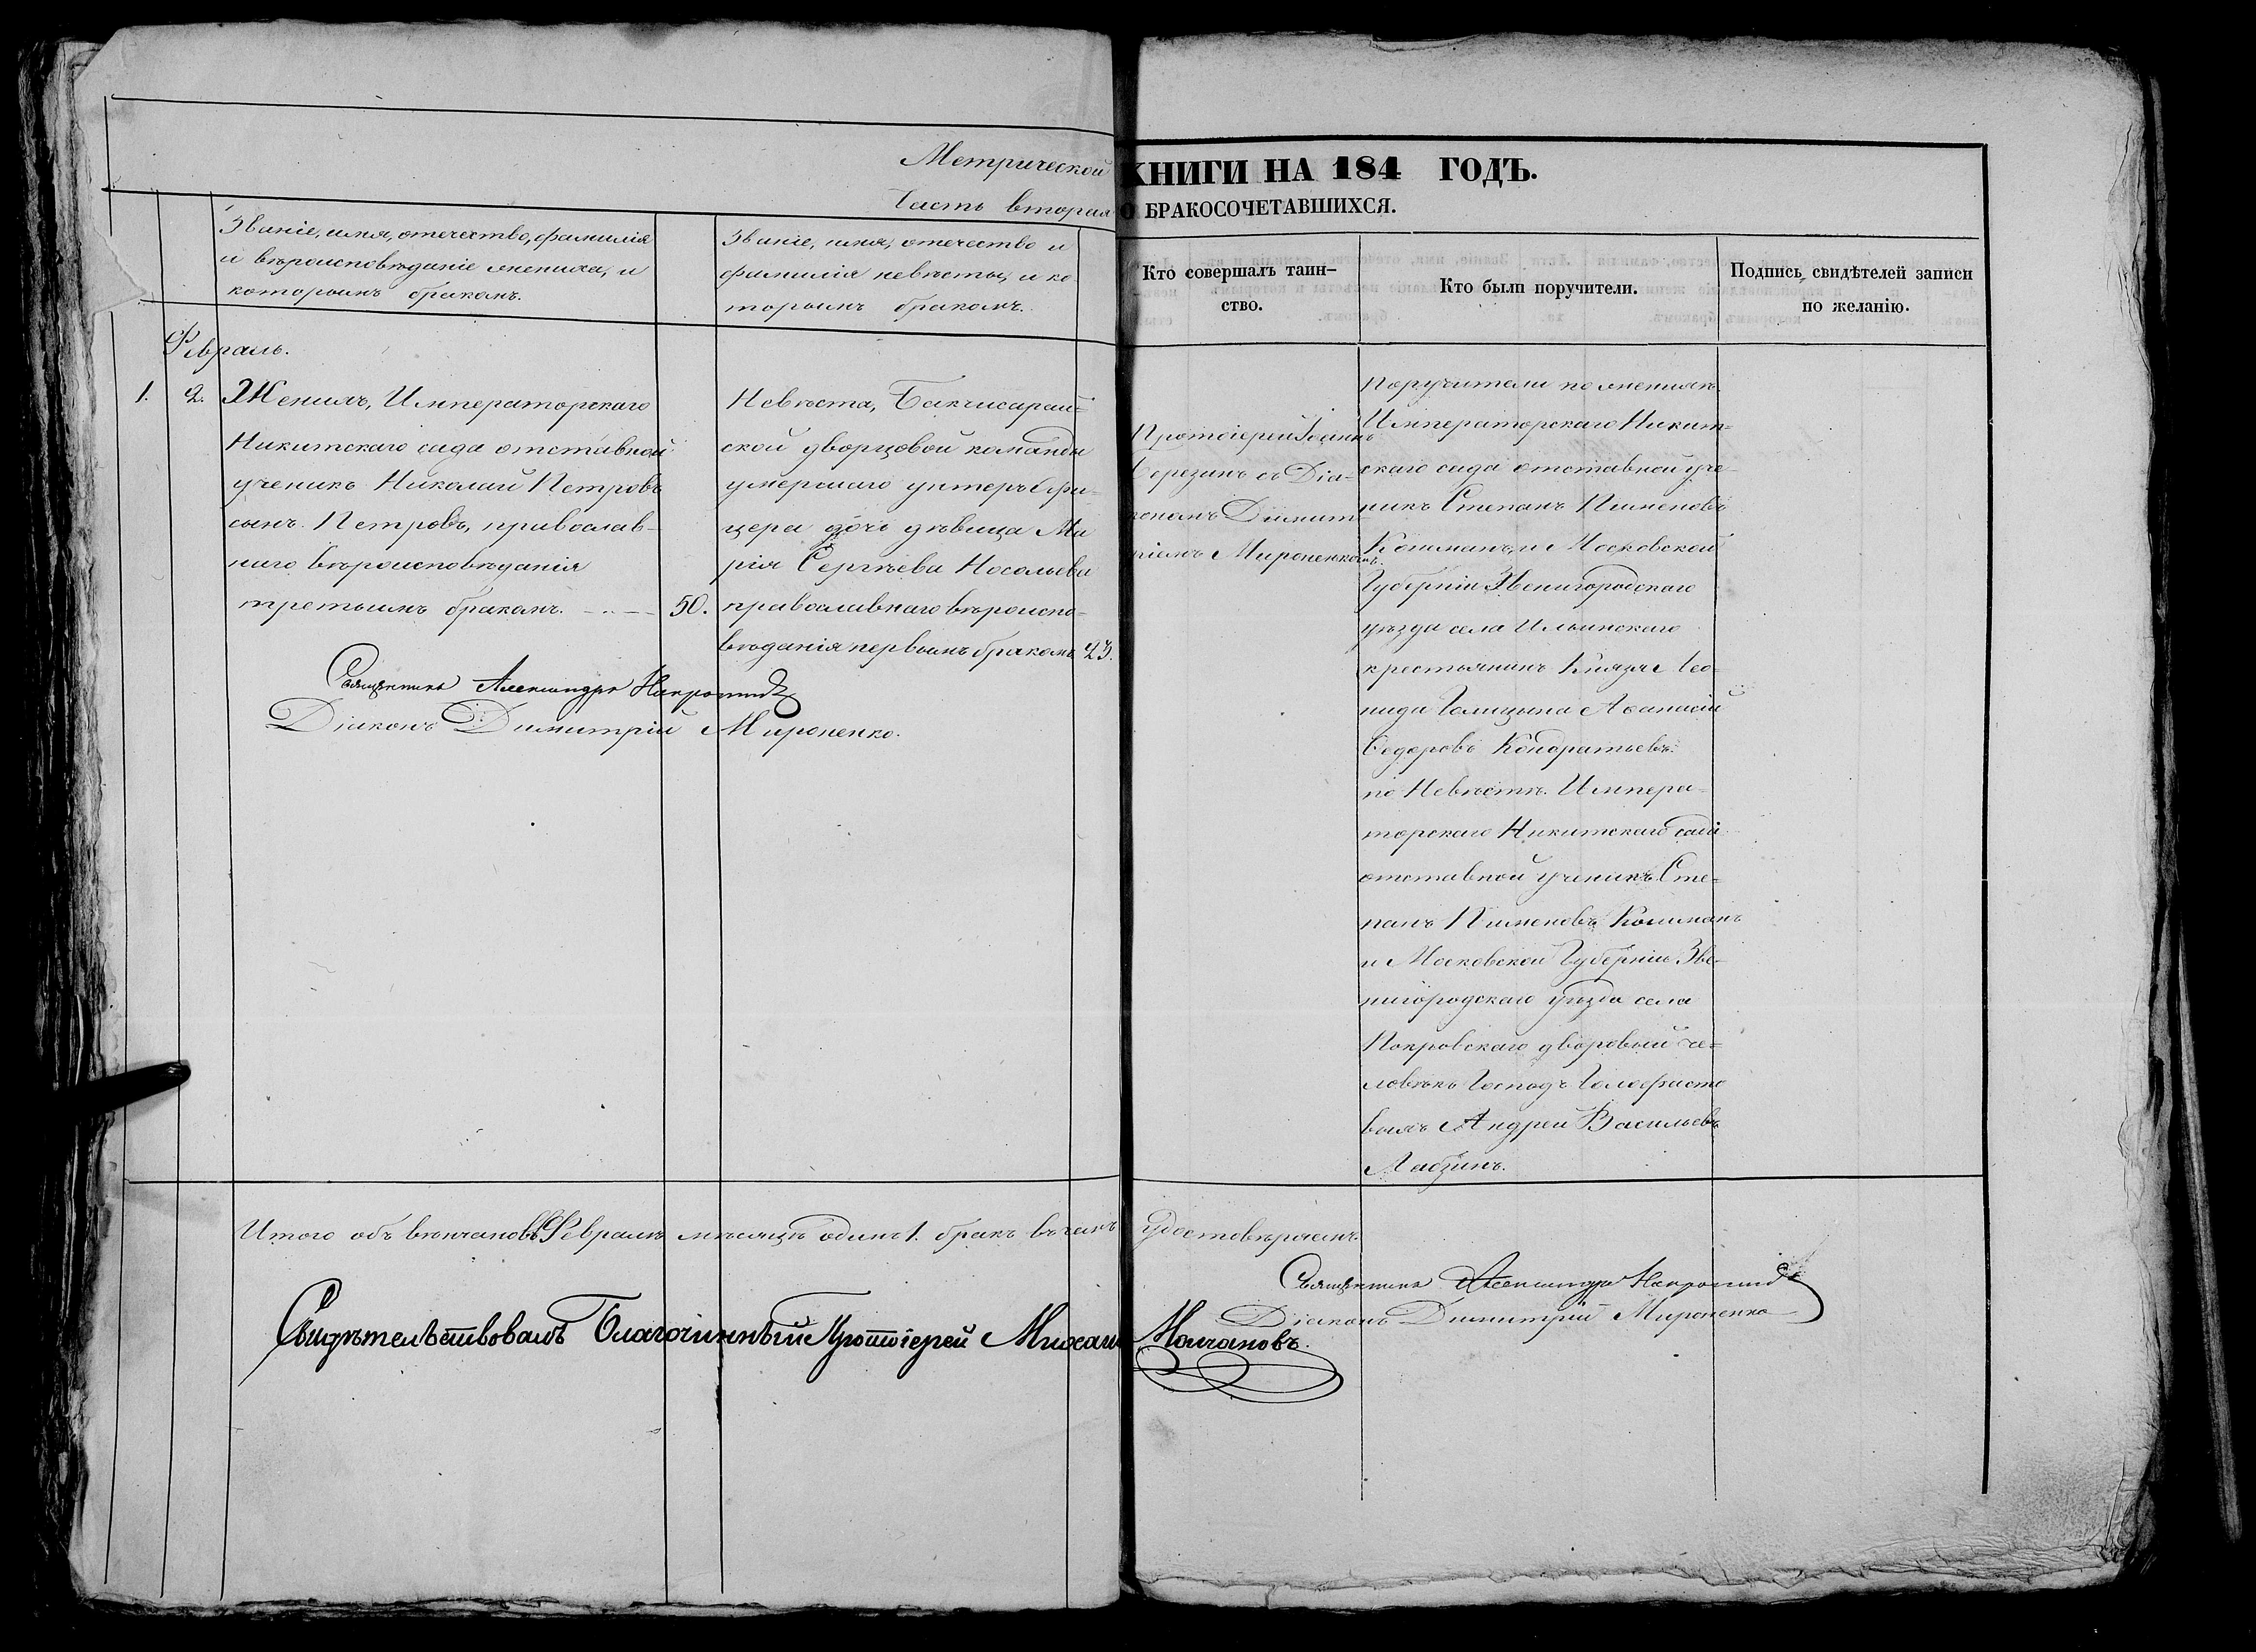 Метрической КНИГИ НА 184 ГОДЪ.
Часть вторая О БРАКОСОЧЕТАВШИХСЯ.
Званіе, имя, отечество, фамилія
и вѣроисповѣданіе жениха, и
которымъ бракомъ.
Званіе, имя, отечество и
фамилія невѣсты, и ко
торымъ бракомъ.
Кто совершалъ таин-
ство.
Кто были поручители.
Подпись свидѣтелей записи
по желанію.
Февраль.
1. 2. Женихъ, Императорскаго
Никитскаго сада отставной
ученикъ Николай Петровъ
сынъ Петровъ, православ-
наго вѣроисповѣданія
третьимъ бракомъ. 50.
Невѣста, Бакчисарай=
ской дворцовой команды
умершаго унтеръ офи-
цера дочь дѣвица Ма
рія Сергѣева Носольева
православнаго вѣроиспо=
вѣданія первымъ бракомъ 23.
Священникъ Александръ
Діаконъ Димитрій Мироненко.
Протоіерей Іоаннъ
Березинъ съ Діа-
кономъ Димит-
ріемъ Мироненкомъ.
Поручители по женихѣ.
Императорскаго Никит=
скаго сада отставной уче-
никъ Степанъ Пименовъ
Кошманъ, и Московской
Губерніи Звенигородскаго
уѣзда села Ильинскаго
крестьянинъ Князя Лео-
нида Голицына Аѳанасій
Ѳедоровъ Кондратьевъ.
по Невѣстѣ. Импера-
торскаго Никитскаго сада
отставной ученикъ Сте=
панъ Пименовъ Кошманъ
и Московской Губерніи Зве-
нигородскаго уѣзда села
Покровскаго дворовый че=
ловѣкъ Господъ Голофасто
выхъ Андрей Васильевъ
Лабзинъ.
Итого обвѣнчановъ Февралѣ мѣсяцѣ одинъ 1. бракъ въ чемъ удостовѣряемъ.
Священникъ Александръ
Діаконъ Димитрій Мироненко
Свидѣтельствовалъ Благочинный Протоіерей Михаилъ Молчановъ.